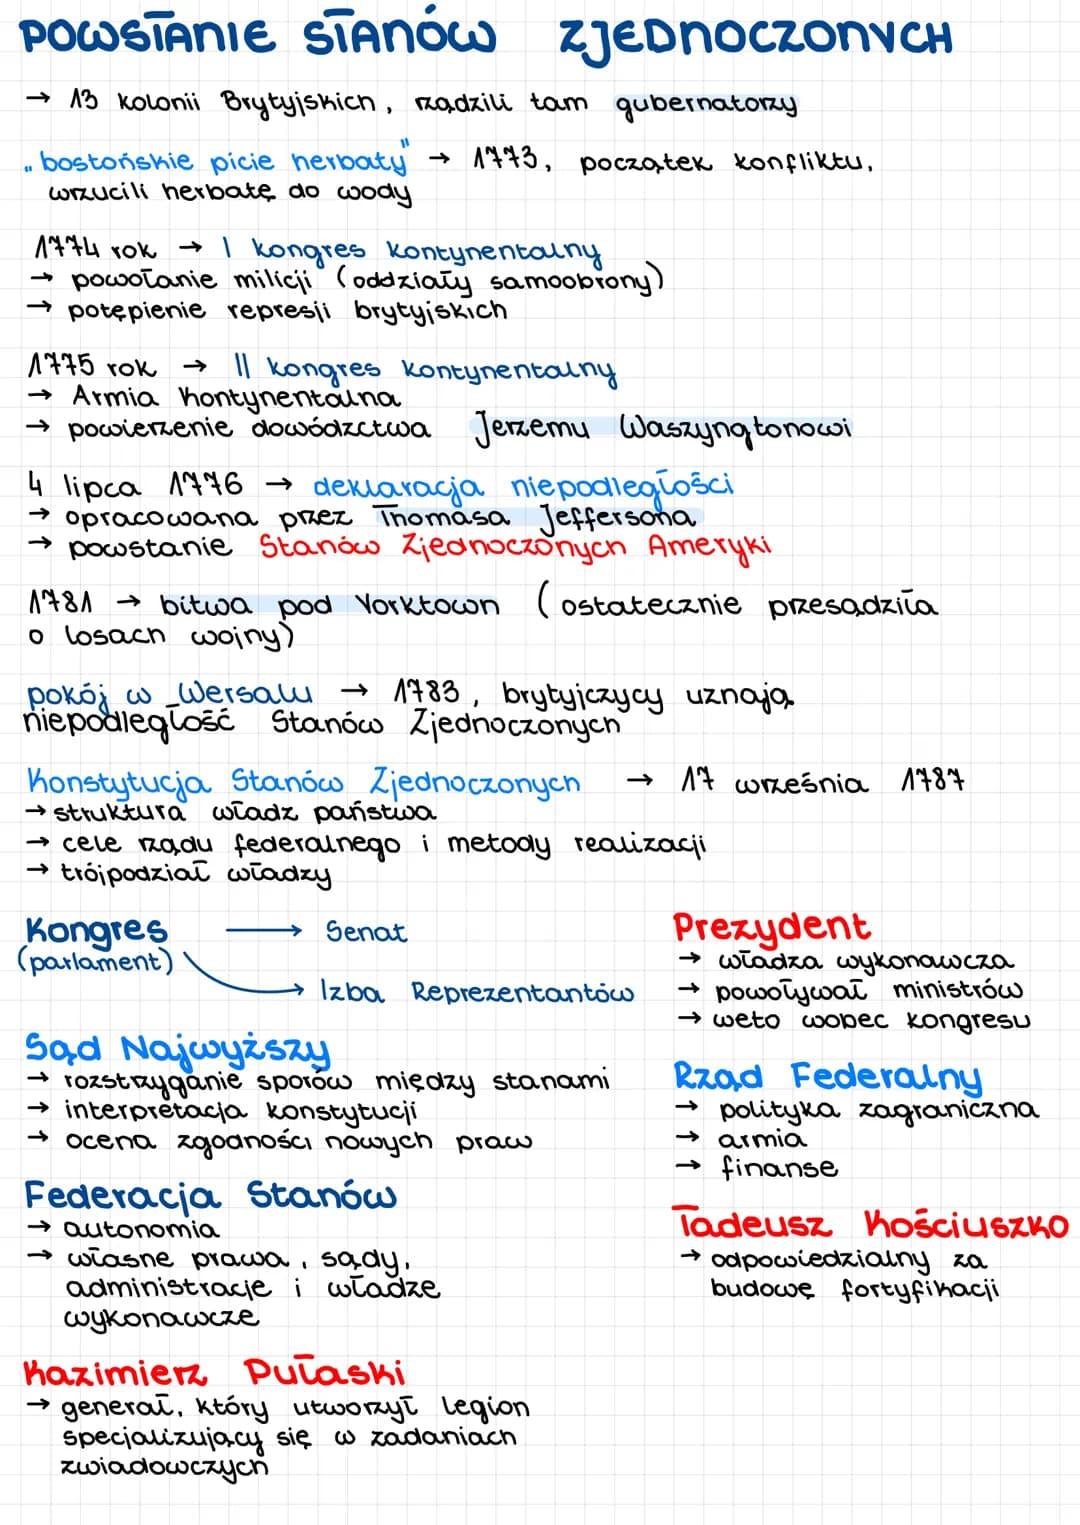 POWSTANIE STANÓW ZJEDNOCZONYCH
→ 13 kolonii Brytyjskich, rządzili tam gubernatorzy
„bostońskie picie herbaty" → 1773, początek konfliktu,
wrzucili herbatę do wody
1774 rok → I kongres kontynentalny
→ powołanie milicji (oddziały samoobrony)
→ potępienie represji brytyjskich
1775 rok → II kongres kontynentalny
→ Armia Kontynentalna
→ powierzenie dowództwa Jerzemu Waszyngtonowi
4 lipca 1776 → deklaracja niepodległości
→ opracowana przez Thomasa Jeffersona
→ powstanie Stanów Zjednoczonych Ameryki
1781 → bitwa pod Yorktown (ostatecznie przesądziła
o losach wojny)
pokój w Wersalu → 1783, brytyjczycy uznają
niepodległość Stanów Zjednoczonych
Konstytucja Stanów Zjednoczonych → 17 września 1787
→ struktura władz państwa
→ cele rządu federalnego i metody realizacji
→ trójpodział władzy
Kongres → Senat
(parlament)
→ Izba Reprezentantów
Prezydent
→ władza wykonawcza
→ powoływał ministrów
→ weto wobec kongresu
Sąd Najwyższy
→ rozstrzyganie sporów między stanami
→ interpretacja konstytucji
→ ocena zgodności nowych praw
Rząd Federalny
→ polityka zagraniczna
→ armia
→ finanse
Federacja Stanów
→ autonomia
→ własne prawa, sądy,
administracje i władze
wykonawcze
Tadeusz Kościuszko
→ odpowiedzialny za
budowę fortyfikacji
Kazimierz Pułaski
→ generał, który utworzył legion
specjalizujący się w zadaniach
zwiadowczych